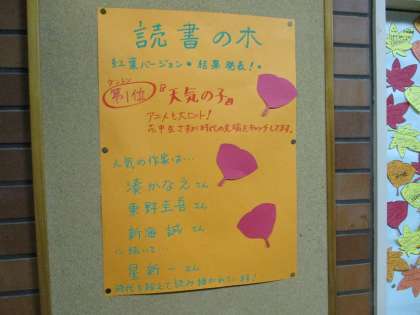 読書の木
紅葉バージョン 結果発表!
ダントツ
第1位 『天気の子』
アニメも大ヒット!
人気の作家は…
湊かなえさん
東野圭吾さん
新海誠さん
に続いて…
星新一さん
時代を超えて読み継がれています!